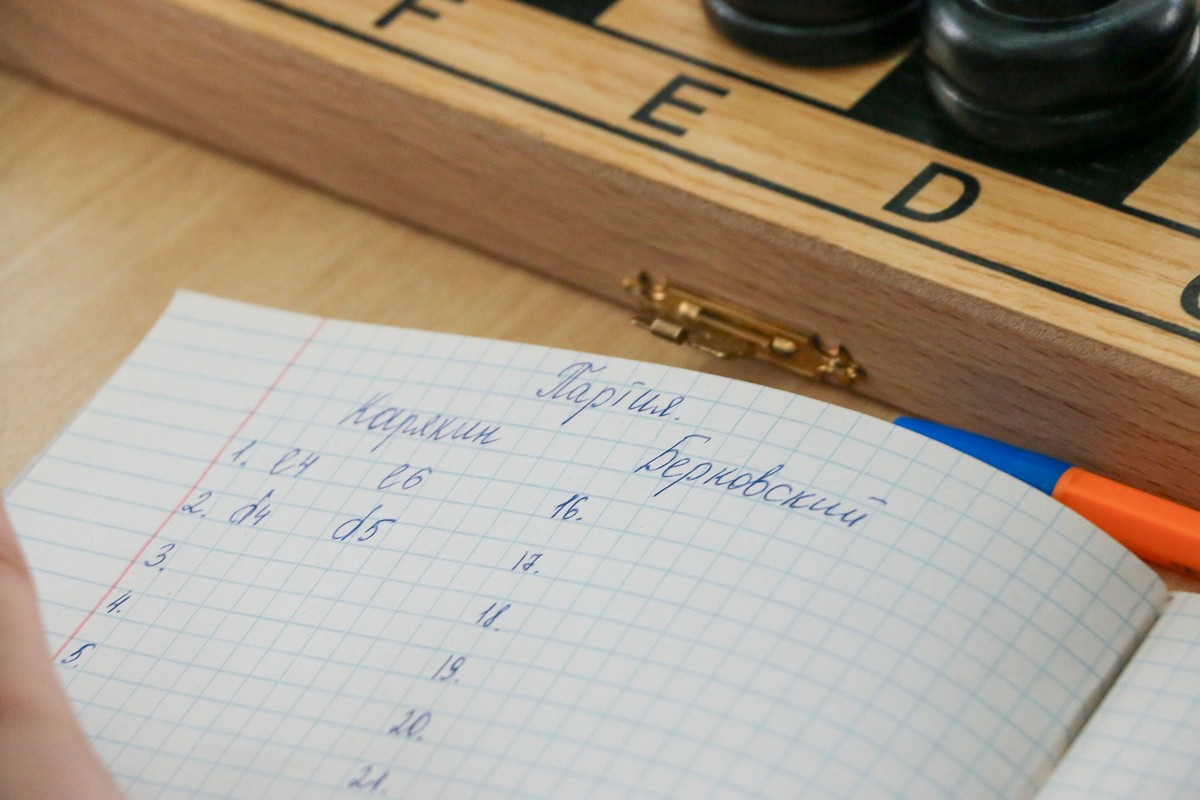 F E D
Партия.
Карякин Берковский
1. e4 e6
2. d4 d5
3.
4.
5.
16.
17.
18.
19.
20.
21.